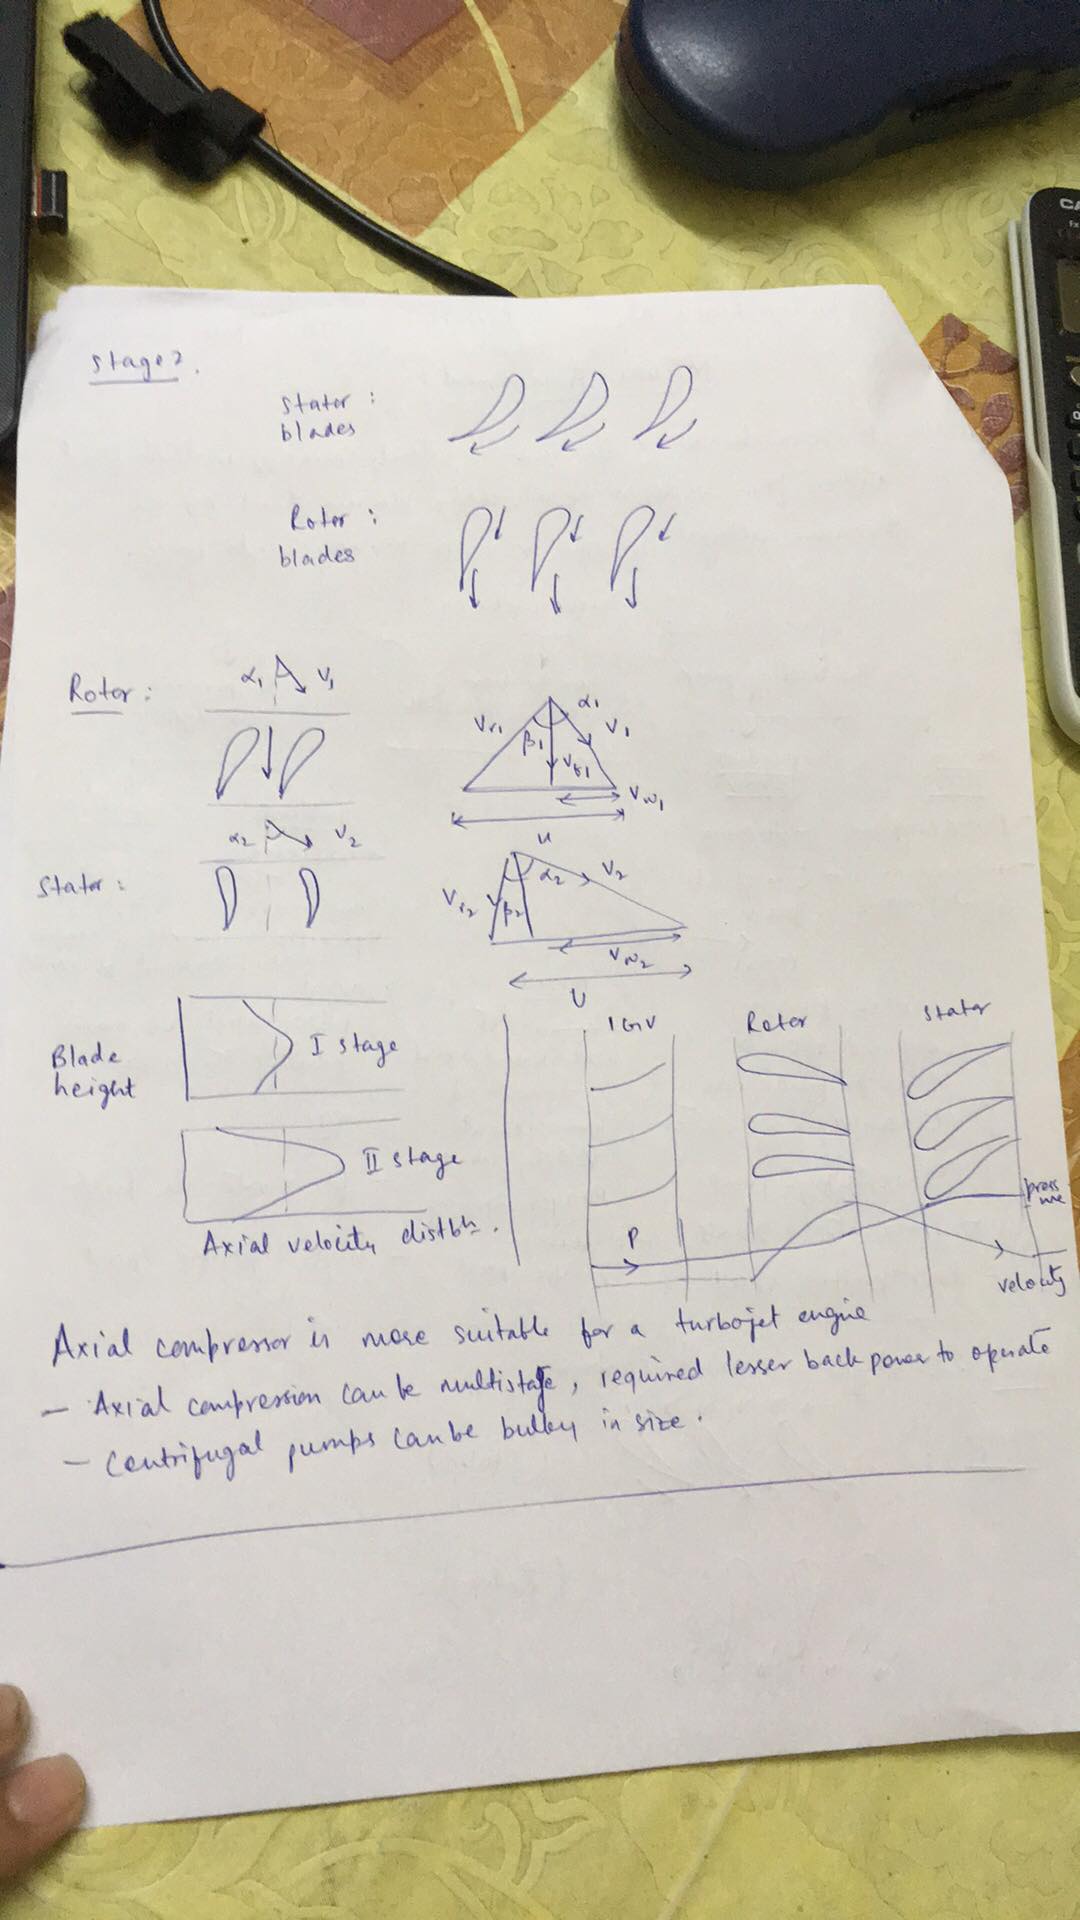 stage 2.
Stator :
blades
Rotor :
blades
Rotor :
α1 V1
α2 V2
Stator :
Vr1 β1 α1 V1
Vf1
Vw1
u
Vr2 β2 α2 V2
Vw2
U
Blade
height
I stage
II stage
Axial velocity distbn.
IGV Rotor Stator
P
press
ure
velocity
Axial compressor is more suitable for a turbojet engine
– Axial compression can be multistage, required lesser back power to operate
– Centrifugal pumps can be bulky in size.
CA
fx